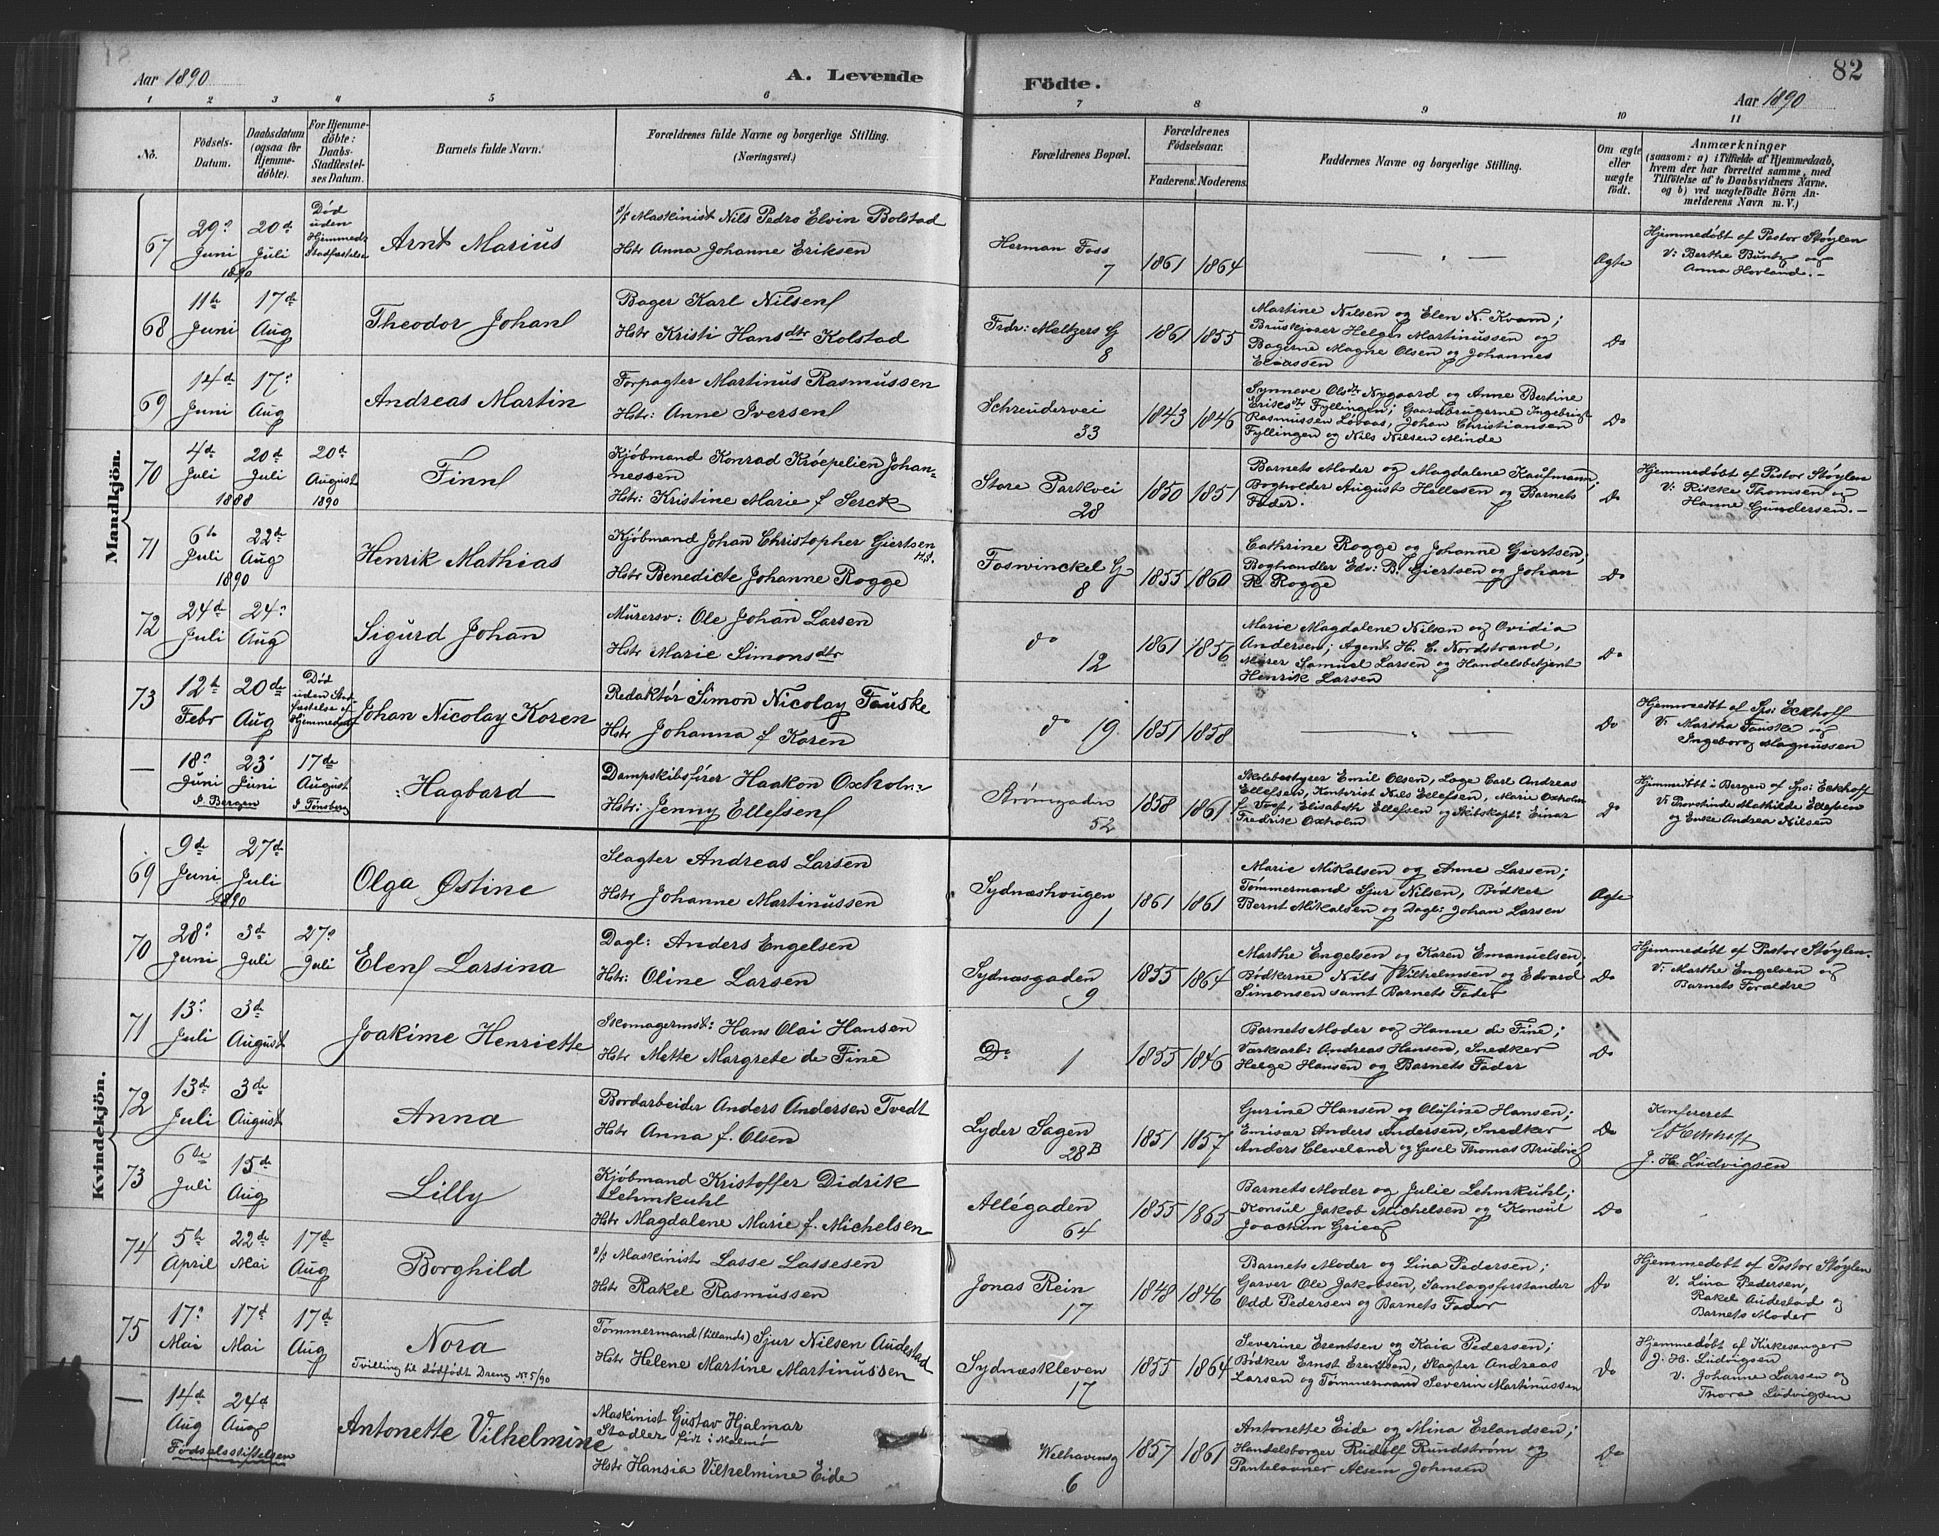 82
Aar 1890
A. Levende
Födte.
Aar 1890
1 2 3 4 5 6 7 8 9 10 11
No.
Födsels-
Datum.
Daabsdatum
(ogsaa for
Hjemme-
döbte).
For Hjemme-
döbte:
Daabs-
Stadfæstel-
ses Datum.
Barnets fulde Navn.
Forældrenes fulde Navne og borgerlige Stilling.
(Næringsvei.)
Forældrenes Bopæl.
Forældrenes
Födselsaar.
Faderens. Moderens.
Faddernes Navne og borgerlige Stilling.
Om ægte
eller
uægte
födt.
Anmærkninger
(saasom: a) i Tilfælde af Hjemmedaab,
hvem der har forrettet samme, med
Tilföielse af to Daabsvidners Navne.
og b) ved uægtefödte Börn An-
melderens Navn m. V.)
Mandkjön.
67
29de Juni 1890
20de Juli
Död uden Hjemmeds Stadfæstelse
Arnt Marius
s/s Maskinist Nils Pedro Elvin Bolstad
Hstr Anna Johanne Eriksen
Herman Foss 7
1861 1864
— „ —
Ægte
Hjemmedöbt af Pastor Støylen
V: Berthe Buntz og
Anna Hovland.-
68
11te Juni
17de Aug
Theodor Johan
Bager Karl Nilsen
Hstr Kristi Hansdtr Kolstad
Fr.dr: Meltzers G 8
1861 1855
Martine Nilsen og Elen N. Kvam;
Bruskjører Helge Martinussen og
Bagerne Magne Olsen og Johannes
Eliassen
Do
69
14de Juni
17de Aug
Andreas Martin
Forpagter Martinus Rasmussen
Hstr: Anne Iversen
Schreudervei 33
1843 1846
Synneve Olsdtr Nygaard og Anne Bertine
Eriksdtr Fyllingen; Gaardbrugerne Ingebrigt
Rasmussen Løvaas, Johan Christiansen
Fyllingen og Nils Nilsen Minde
Do
70
4de Juli 1888
20de Juli
20de August 1890
Finn
Kjöbmand Konrad Krøepelien Johan-
nessen
Hstr: Kristine Marie f. Serck
Store Parkvei 28
1850 1851
Barnets Moder og Magdalene Kaufmann;
Bogholder August Hellesen og Barnets
Fader.
Do
Hjemmedöbt af Pastor Støylen
V: Rikke Thomsen og
Hanne Gundersen.-
71
6te Juli 1890
22de Aug
Henrik Mathias
Kjöbmand Johan Christopher Giertsen
H.S.
Hstr Benedicte Johanne Rogge
Foswinckel G 8
1855 1860
Cathrine Rogge og Johanne Giertsen;
Boghandler Edv: B. Giertsen og Johan
R. Rogge
Do
72
24de Juli
24de Aug
Sigurd Johan
Murersv: Ole Johan Larsen
Hstr Marie Simonsdtr
do 12
1861 1856
Marie Magdalene Nilsen og Ovidia
Andersen; Agent H. E. Nordstrand,
Murer Samuel Larsen og Handelsbetjent
Henrik Larsen
Do
73
12te Febr
20de Aug
Död uden Stadfæstelse af Hjemmedaab
Johan Nicolay Koren
Redaktör Simon Nicolay Fauske
Hstr Johanna f Koren
do 19
1851 1858
— „ —
Do
Hjemmedöbt af Sp: Eckhoff
V: Martha Fauske og
Ingeborg Magnussen
—
18de Juni
23de Juni
I Bergen
17de August
I Tønsberg
Hagbard
Dampskibsfører Haakon Oxholm
Hstr: Jenny Ellefsen
Strömgaden 52
1858 1861
Skolebestyrer Emil Olsen, Læge Carl Andreas
Ellefsen, Kontorist Nils Ellefsen, Marie Oxholm
f. Vogt, Elisabeth Ellefsen og Skibskapt: Einar
Fredrik Oxholm
Do
Hjemmedöbt i Bergen af Sp: Eckhoff
V: Provstinde Mathilde Ellefsen
og Enke Andrea Nilsen
Kvindekjön.
69
9de Juni 1890
27de Juli
Olga Østine
Slagter Andreas Larsen
Hstr Johanne Martinussen
Sydnæshougen 1
1861 1861
Marie Mikalsen og Anne Larsen;
Tömmermand Sjur Nilsen, Bödker
Bernt Mikalsen og Dagl: Johan Larsen
Ægte
70
28de Juni
3de Juli
27de Juli
Elen Larsina
Dagl: Anders Engelsen
Hstr: Oline Larsen
Sydnæsgaden 9
1855 1864
Marthe Engelsen og Karen Emanuelsen,
Bödkerne Nils Vilhelmsen og Edvard
Simonsen samt Barnets Fader
Do
Hjemmedöbt af Pastor Støylen.
V: Marthe Engelsen og
Barnets Forældre
71
13de Juli
3de August
Joakime Henriette
Skomagermst: Hans Olai Hansen
Hstr Mette Margrete de Fine
Do 1
1855 1846
Barnets Moder og Hanne de Fine;
Værksarb: Andreas Hansen, Snedker
Helge Hansen og Barnets Fader
Do
72
13de Juli
3de August
Anna
Bordarbeider Anders Andersen Tvedt
Hstr Anna f. Olsen
Lyder Sagen 28B
1851 1857
Gurine Hansen og Olufine Hansen;
Emisær Anders Andersen, Snedker
Anders Cleveland og Gesel Thomas Brudvig
Do
Konfereret
Eckhoff
J. H. Ludvigsen
73
6te Juli
15de Aug
Lilly
Kjöbmand Kristoffer Didrik
Lehmkuhl
Hstr Magdalene Marie f. Michelsen
Allégaden 64
1855 1865
Barnets Moder og Julie Lehmkuhl;
Konsul Jakob Michelsen og Konsul
Joachim Grieg
Do
74
5te April
22de Mai
17de Aug
Borghild
s/s Maskinist Lasse Lassesen
Hstr Rakel Rasmussen
Jonas Rein 17
1848 1846
Barnets Moder og Lina Pedersen;
Garver Ole Jakobsen, Samlagsforstander
Odd Pedersen og Barnets Fader
Do
Hjemmedöbt af Pastor Støylen
V. Lina Pedersen,
Rakel Audestad og
Barnets Moder
75
17de Mai
17de Mai
17de Aug
Nora
Tvilling til dødfødt Dreng No 5/90
Tømmermand (tillands) Sjur Nilsen Audestad
Hstr Helene Martine Martinussen
Sydnæskleven 17
1855 1864
Severine Erentsen og Kaia Pedersen;
Bödker Ernst Erentsen, Slagter Andreas
Larsen og Tømmermand Severin Martinussen
Do
Hjemmedöbt af Kirkesanger
J. H. Ludvigsen
V. Johanne Larsen og
Thora Ludvigsen
—
14de Aug
24de Aug
Fødselsstiftelsen
Antonette Vilhelmine
Maskinist Gustav Hjalmar
Stadler født i Malmø
Hstr Hansia Vilhelmine Eide
Welhavensg 6
1857 1861
Antonette Eide og Mina Erlandsen;
Handelsborger Rudolf Rundstrøm og
Pantelaaner Alsem Johnsen
Do